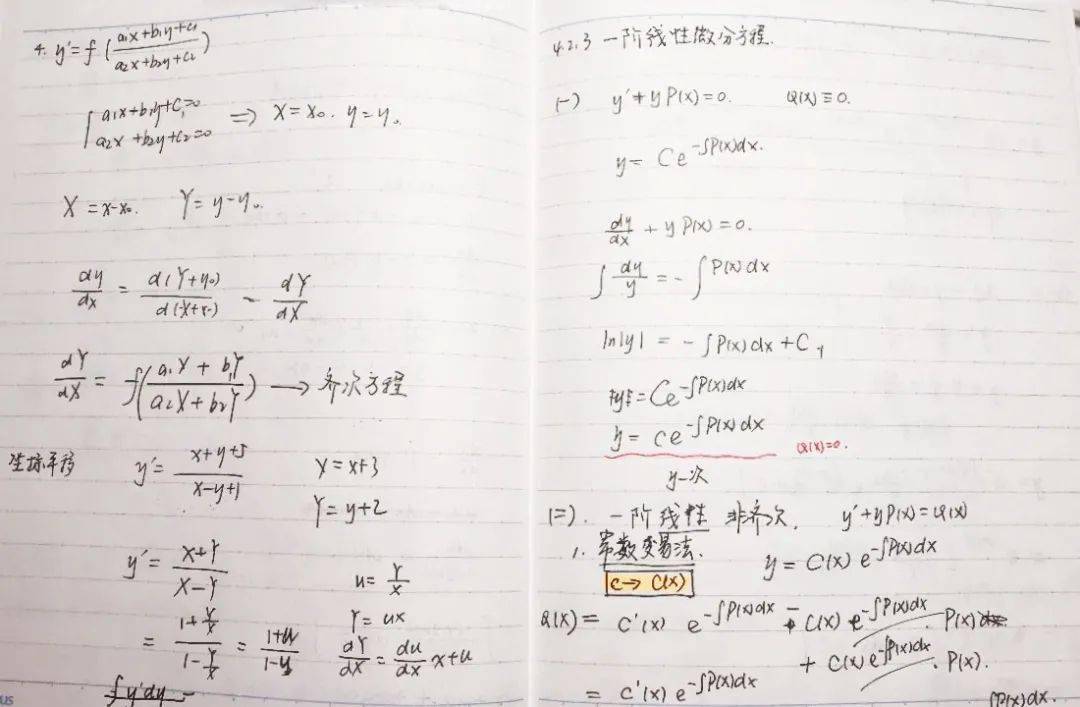 4. y'=f(\frac{a_1x+b_1y+c_1}{a_2x+b_2y+c_2})
\begin{cases} a_1x+b_1y+c_1=0 \\ a_2x+b_2y+c_2=0 \end{cases} ⇒ x=x_0. y=y_0.
X=x-x_0. Y=y-y_0.
\frac{dy}{dx} = \frac{d(Y+y_0)}{d(X+x_0)} - \frac{dY}{dX}
\frac{dY}{dX} = f(\frac{a_1X+b_1Y}{a_2X+b_2Y}) → 齐次方程
坐标平移 y'= \frac{x+y+5}{x-y+1} X=x+3
Y=y+2
y'= \frac{X+Y}{X-Y} u=\frac{Y}{X}
= \frac{1+\frac{Y}{X}}{1-\frac{Y}{X}} = \frac{1+u}{1-u} Y=ux
\frac{dY}{dX} = \frac{du}{dx}x+u
∫y'dy=
4.2.3 一阶线性微分方程.
(一) y'+yP(x)=0. Q(x)≡0.
y= Ce^{-∫P(x)dx}.
\frac{dy}{dx} + yP(x)=0.
∫\frac{dy}{y} = -∫P(x)dx
ln|y| = -∫P(x)dx+C_1
|y|=Ce^{-∫P(x)dx}
y= ce^{-∫P(x)dx} Q(x)=0.
y一次
(二). 一阶线性 非齐次. y'+yP(x)=Q(x)
1. 常数变易法. y= C(x)e^{-∫P(x)dx}
c→C(x)
Q(x)= C'(x) e^{-∫P(x)dx} - C(x)e^{-∫P(x)dx}.P(x)dx
+ C(x)e^{-∫P(x)dx}.P(x).
= C'(x)e^{-∫P(x)dx}
∫P(x)dx.